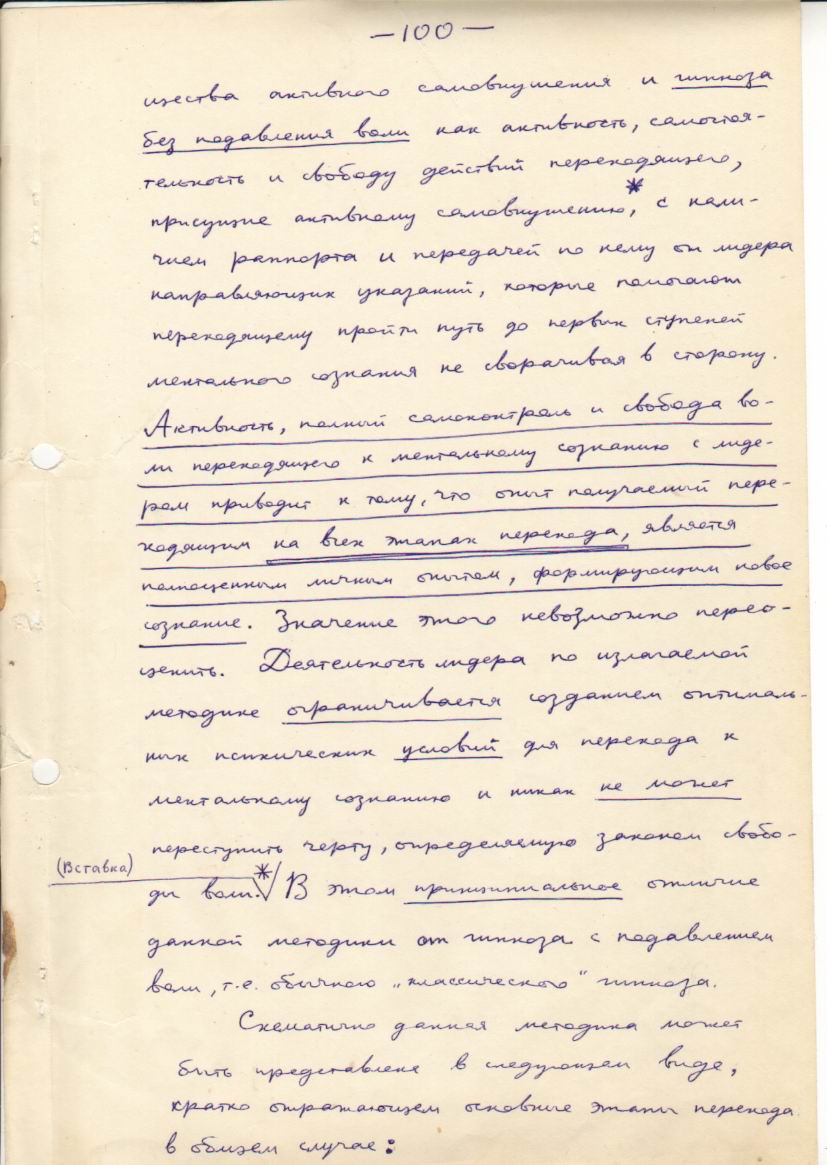 —100—
щества активного самовнушения и гипноза
без подавления воли как активность, самостоя-
тельность и свободу действий переходящего,
присущие активному самовнушению,* с нали-
чием раппорта и передачей по нему от лидера
направляющих указаний, которые помогают
переходящему пройти путь до первых ступеней
ментального сознания не сворачивая в сторону.
Активность, полный самоконтроль и свобода во-
ли переходящего к ментальному сознанию с лиде-
ром приводит к тому, что опыт получаемый пере-
ходящим на всех этапах перехода, является
полноценным личным опытом, формирующим новое
сознание. Значение этого невозможно перео-
ценить. Деятельность лидера по излагаемой
методике ограничивается созданием оптималь-
ных психических условий для перехода к
ментальному сознанию и никак не может
переступить черту, определяемую законом свобо-
(Вставка)
ды воли.* В этом принципиальное отличие
данной методики от гипноза с подавлением
воли, т.е. обычного „классического" гипноза.
Схематично данная методика может
быть представлена в следующем виде,
кратко отражающем основные этапы перехода
в общем случае: